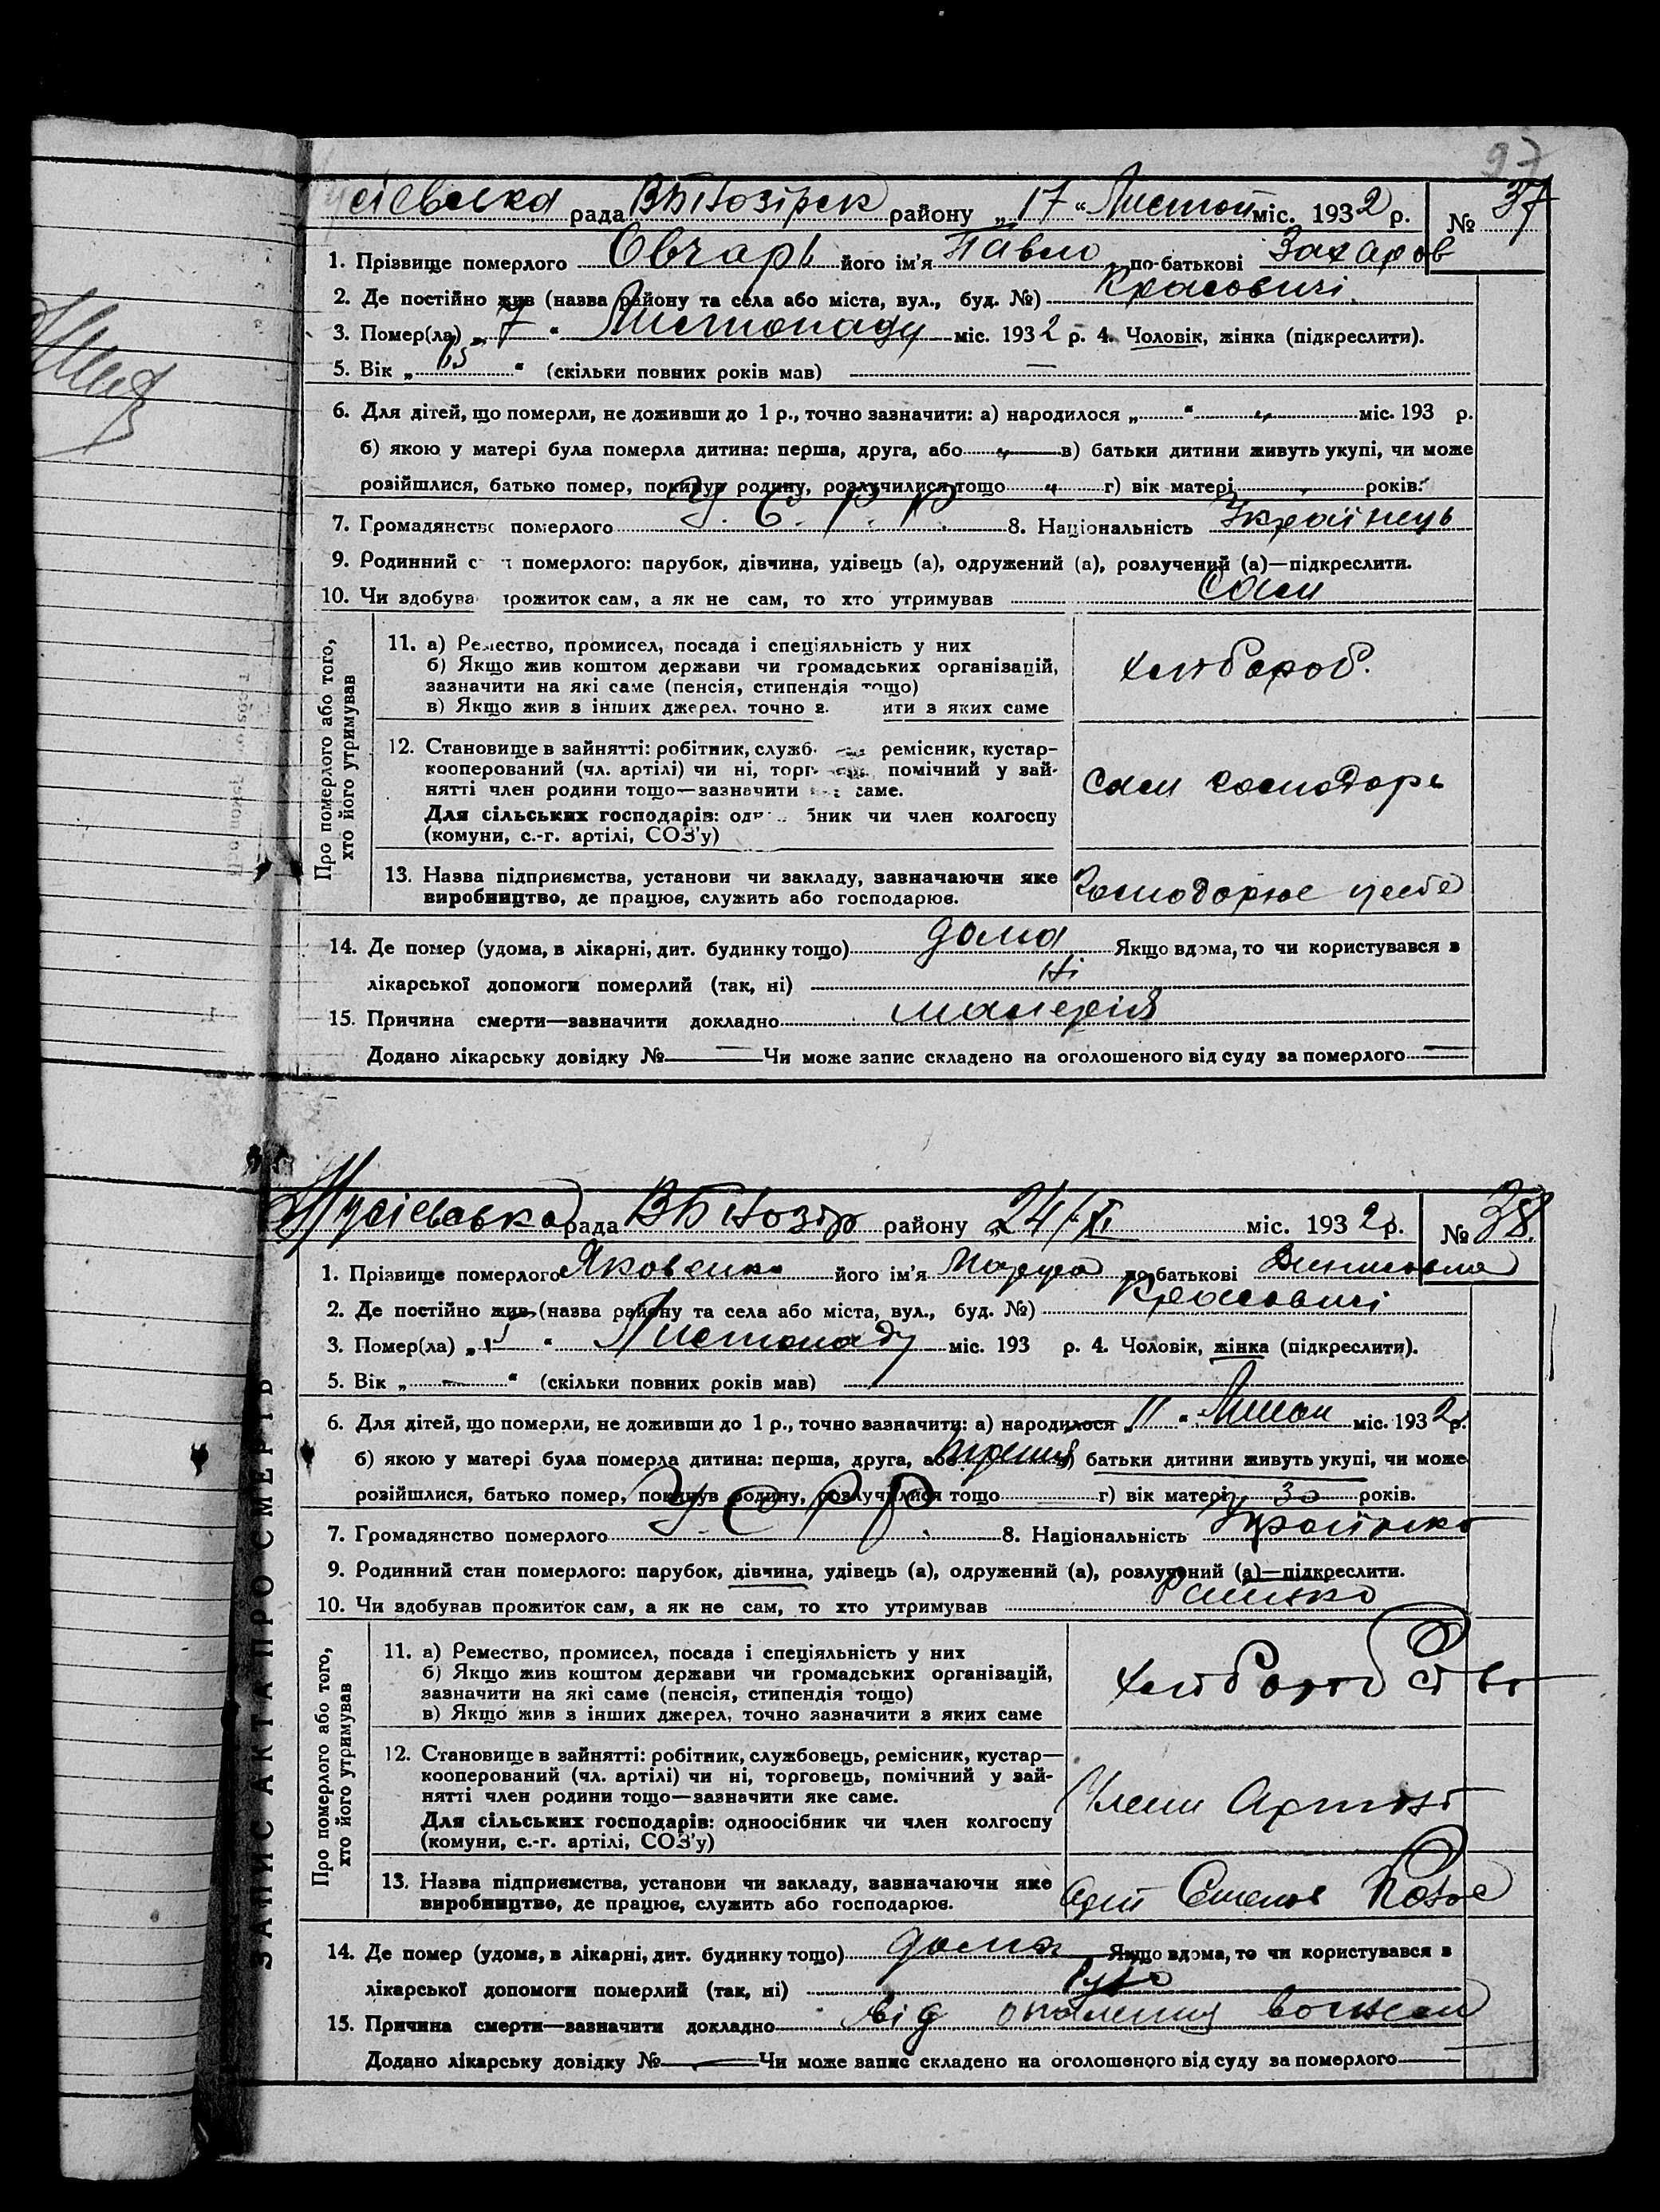 97
рада район у „17“ Листоп міс. 1932 р. № 37
1. Прізвище померлого Овчарь його ім’я Павло по-батькові Захаров
2. Де постійно жив (назва району та села або міста, вул., буд. №) Красовичі
3. Помер(ла) „7“ Листопаду міс. 1932 р. 4. Чоловік, жінка (підкреслити).
5. Вік „65“ (скільки повних років мав) —
6. Для дітей, що померли, не доживши до 1 р., точно зазначити: а) народилося „ “ міс. 193 р.
б) якою у матері була померла дитина: перша, друга, або в) батьки дитини живуть укупі, чи може
розійшлися, батько помер, покинув родину, розлучилися тощо г) вік матері років.
7. Громадянство померлого У.С.Р.Р. 8. Національність Українець
9. Родинний с померлого: парубок, дівчина, удівець (а), одружений (а), розлучений (а)—підкреслити.
10. Чи здобува прожиток сам, а як не сам, то хто утримував Сам
Про померлого або того, хто його утримував
11. а) Ремество, промисел, посада і спеціяльність у них
б) Якщо жив коштом держави чи громадських організацій,
зазначити на які саме (пенсія, стипендія тощо)
в) Якщо жив з інших джерел, точно з ити з яких саме
хлібороб.
12. Становище в зайнятті: робітник, служб ремісник, кустар-
кооперований (чл. артілі) чи ні, торг помічний у зай-
нятті член родини тощо—зазначити саме.
Для сільських господарів: од бник чи член колгоспу
(комуни, с.-г. артілі, СОЗ’у)
Сам господарь
13. Назва підприємства, установи чи закладу, зазначаючи яке
виробництво, де працює, служить або господарює.
Господорює
14. Де помер (удома, в лікарні, дит. будинку тощо) дома Якщо вдома, то чи користувався з
лікарської допомоги померлий (так, ні) ні
15. Причина смерти—зазначити докладно малерія
Додано лікарську довідку № — Чи може запис складено на оголошеного від суду за померлого —
ЗАПИС АКТА ПРО СМЕРТЬ
Мусієвська рада району 24/XI міс. 1932 р. № 38.
1. Прізвище померлого Яковенко його ім’я Марфа по-батькові Денисовна
2. Де постійно жив (назва району та села або міста, вул., буд. №) Красовичі
3. Помер(ла) „ “ Листопаду міс. 193 р. 4. Чоловік, жінка (підкреслити).
5. Вік „—“ (скільки повних років мав)
6. Для дітей, що померли, не доживши до 1 р., точно зазначити: а) народилося „11“ міс. 1932 р.
б) якою у матері була померла дитина: перша, друга, або в) батьки дитини живуть укупі, чи може
розійшлися, батько помер, покинув родину, розлучилися тощо г) вік матері 30 років.
7. Громадянство померлого У.С.Р.Р. 8. Національність Українка
9. Родинний стан померлого: парубок, дівчина, удівець (а), одружений (а), розлучений (а)—підкреслити.
10. Чи здобував прожиток сам, а як не сам, то хто утримував
Про померлого або того, хто його утримував
11. а) Ремество, промисел, посада і спеціяльність у них
б) Якщо жив коштом держави чи громадських організацій,
зазначити на які саме (пенсія, стипендія тощо)
в) Якщо жив з інших джерел, точно зазначити з яких саме
12. Становище в зайнятті: робітник, службовець, ремісник, кустар—
кооперований (чл. артілі) чи ні, торговець, помічний у зай-
нятті член родини тощо—зазначити яке саме.
Для сільських господарів: одноосібник чи член колгоспу
(комуни, с.-г. артілі, СОЗ’у)
Член Артілі
13. Назва підприємства, установи чи закладу, зазначаючи яке
виробництво, де працює, служить або господарює.
14. Де помер (удома, в лікарні, дит. будинку тощо) дома Якщо вдома, то чи користувався з
лікарської допомоги померлий (так, ні)
15. Причина смерти—зазначити докладно від
Додано лікарську довідку № — Чи може запис складено на оголошеного від суду за померлого —